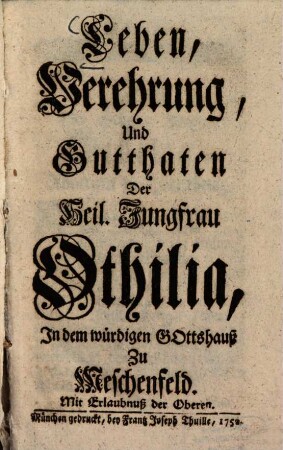 Leben,
Verehrung,
Und
Gutthaten
Der
Heil. Jungfrau
Othilia,
In dem würdigen GOttshauß
Zu
Meschenfeld.
Mit Erlaubnuß der Oberen.
München gedruckt, bey Frantz Joseph Thuille, 1752.